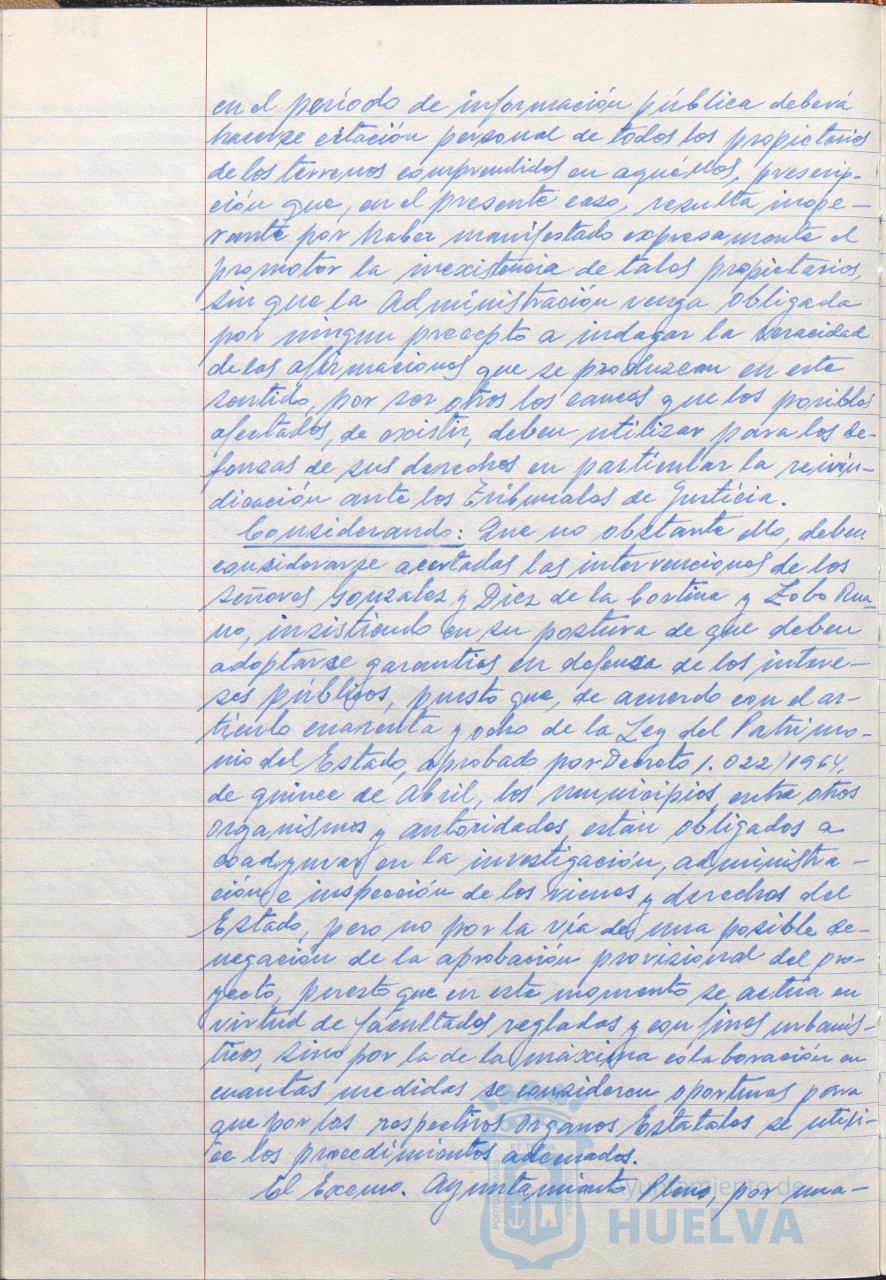 en el período de información pública deberá
hacerse citación personal de todos los propietarios
de los terrenos comprendidos en aquéllos, prescrip-
ción que, en el presente caso, resulta inope-
rante por haber manifestado expresamente el
promotor la inexistencia de tales propietarios,
sin que la Administración venga obligada
por ningun precepto a indagar la veracidad
de las afirmaciones que se produzcan en este
sentido, por ser otros los cauces que los posibles
afectados, de existir, deben utilizar para los de-
fensas de sus derechos en particular la reivin-
dicación ante los Tribunales de Justicia.
Considerando: Que no obstante ello, deben
considerarse acertadas las intervenciones de los
señores Gonzalez y Diez de la Cortina y Lobo Rua-
no, insistiendo en su postura de que deben
adoptarse garantías en defensa de los intere-
ses públicos, puesto que, de acuerdo con el ar-
tículo cuarenta y ocho de la Ley del Patrimo-
nio del Estado, aprobado por Decreto 1.022/1964,
de quince de Abril, los municipios, entre otros
organismos y autoridades, están obligados a
coadyuvar en la investigación, administra-
ción e inspección de los vienes y derechos del
Estado, pero no por la vía de una posible de-
negación de la aprobación provisional del pro-
yecto, puesto que en este momento se actúa en
virtud de facultades regladas y con fines urbanís-
ticos, sino por la de la máxima colaboración en
cuantas medidas se consideren oportunas para
que por los respectivos órganos Estatales se utili-
ce los procedimientos adecuados.
El Excmo. Ayuntamiento Pleno, por una-
Ayuntamiento de
HUELVA